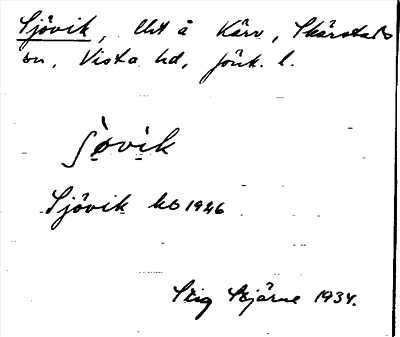 Sjövik, lht å Kärr, Skärstads
sn, Vista hd, Jönk. l.
ʃò̱vi̱k
Sjövik kb 1946
Stig Bjärne 1934.